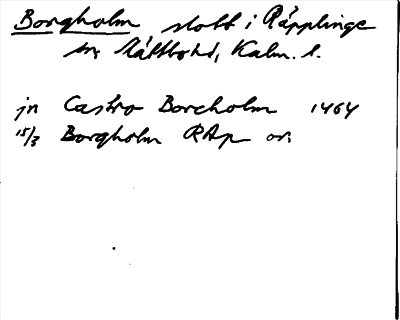 Borgholm slott i Räpplinge
sn, Slättbohd, Kalm. l.
jn Castro Borcholm 1464
15/3 Borgholm RAp or.